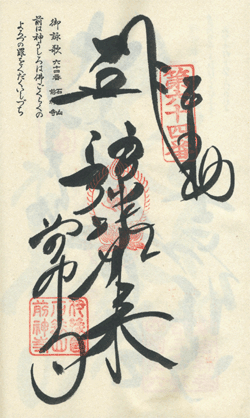 奉納
第六十四番
阿弥陀如来
前神寺
伊豫國
石鈇山
前神寺
御詠歌 六十四番 前神寺
前は神うしろは佛ごくらくの
よろづの罪をくだくいしづち